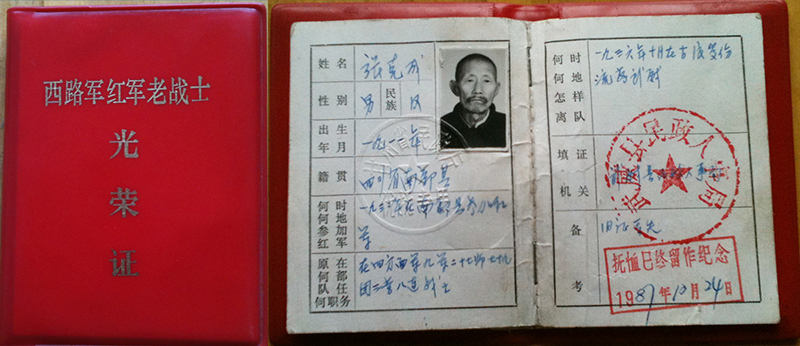 西路军红军老战士
光荣证
姓名 张克成
性别 男 民族 汉
出生年月 一九一一年
籍贯 四川省南部县
何时何地参加红军 一九三三年在南部县参加红
军
原在何部队任何职务 在四方面军九军二十七师七十九
团二营八连战士
何时何地怎样离队 一九三六年十月在古浪负伤
流落
填证机关
县民政人事局
备考 旧证丢失
抚恤已终留作纪念
1987年12月24日